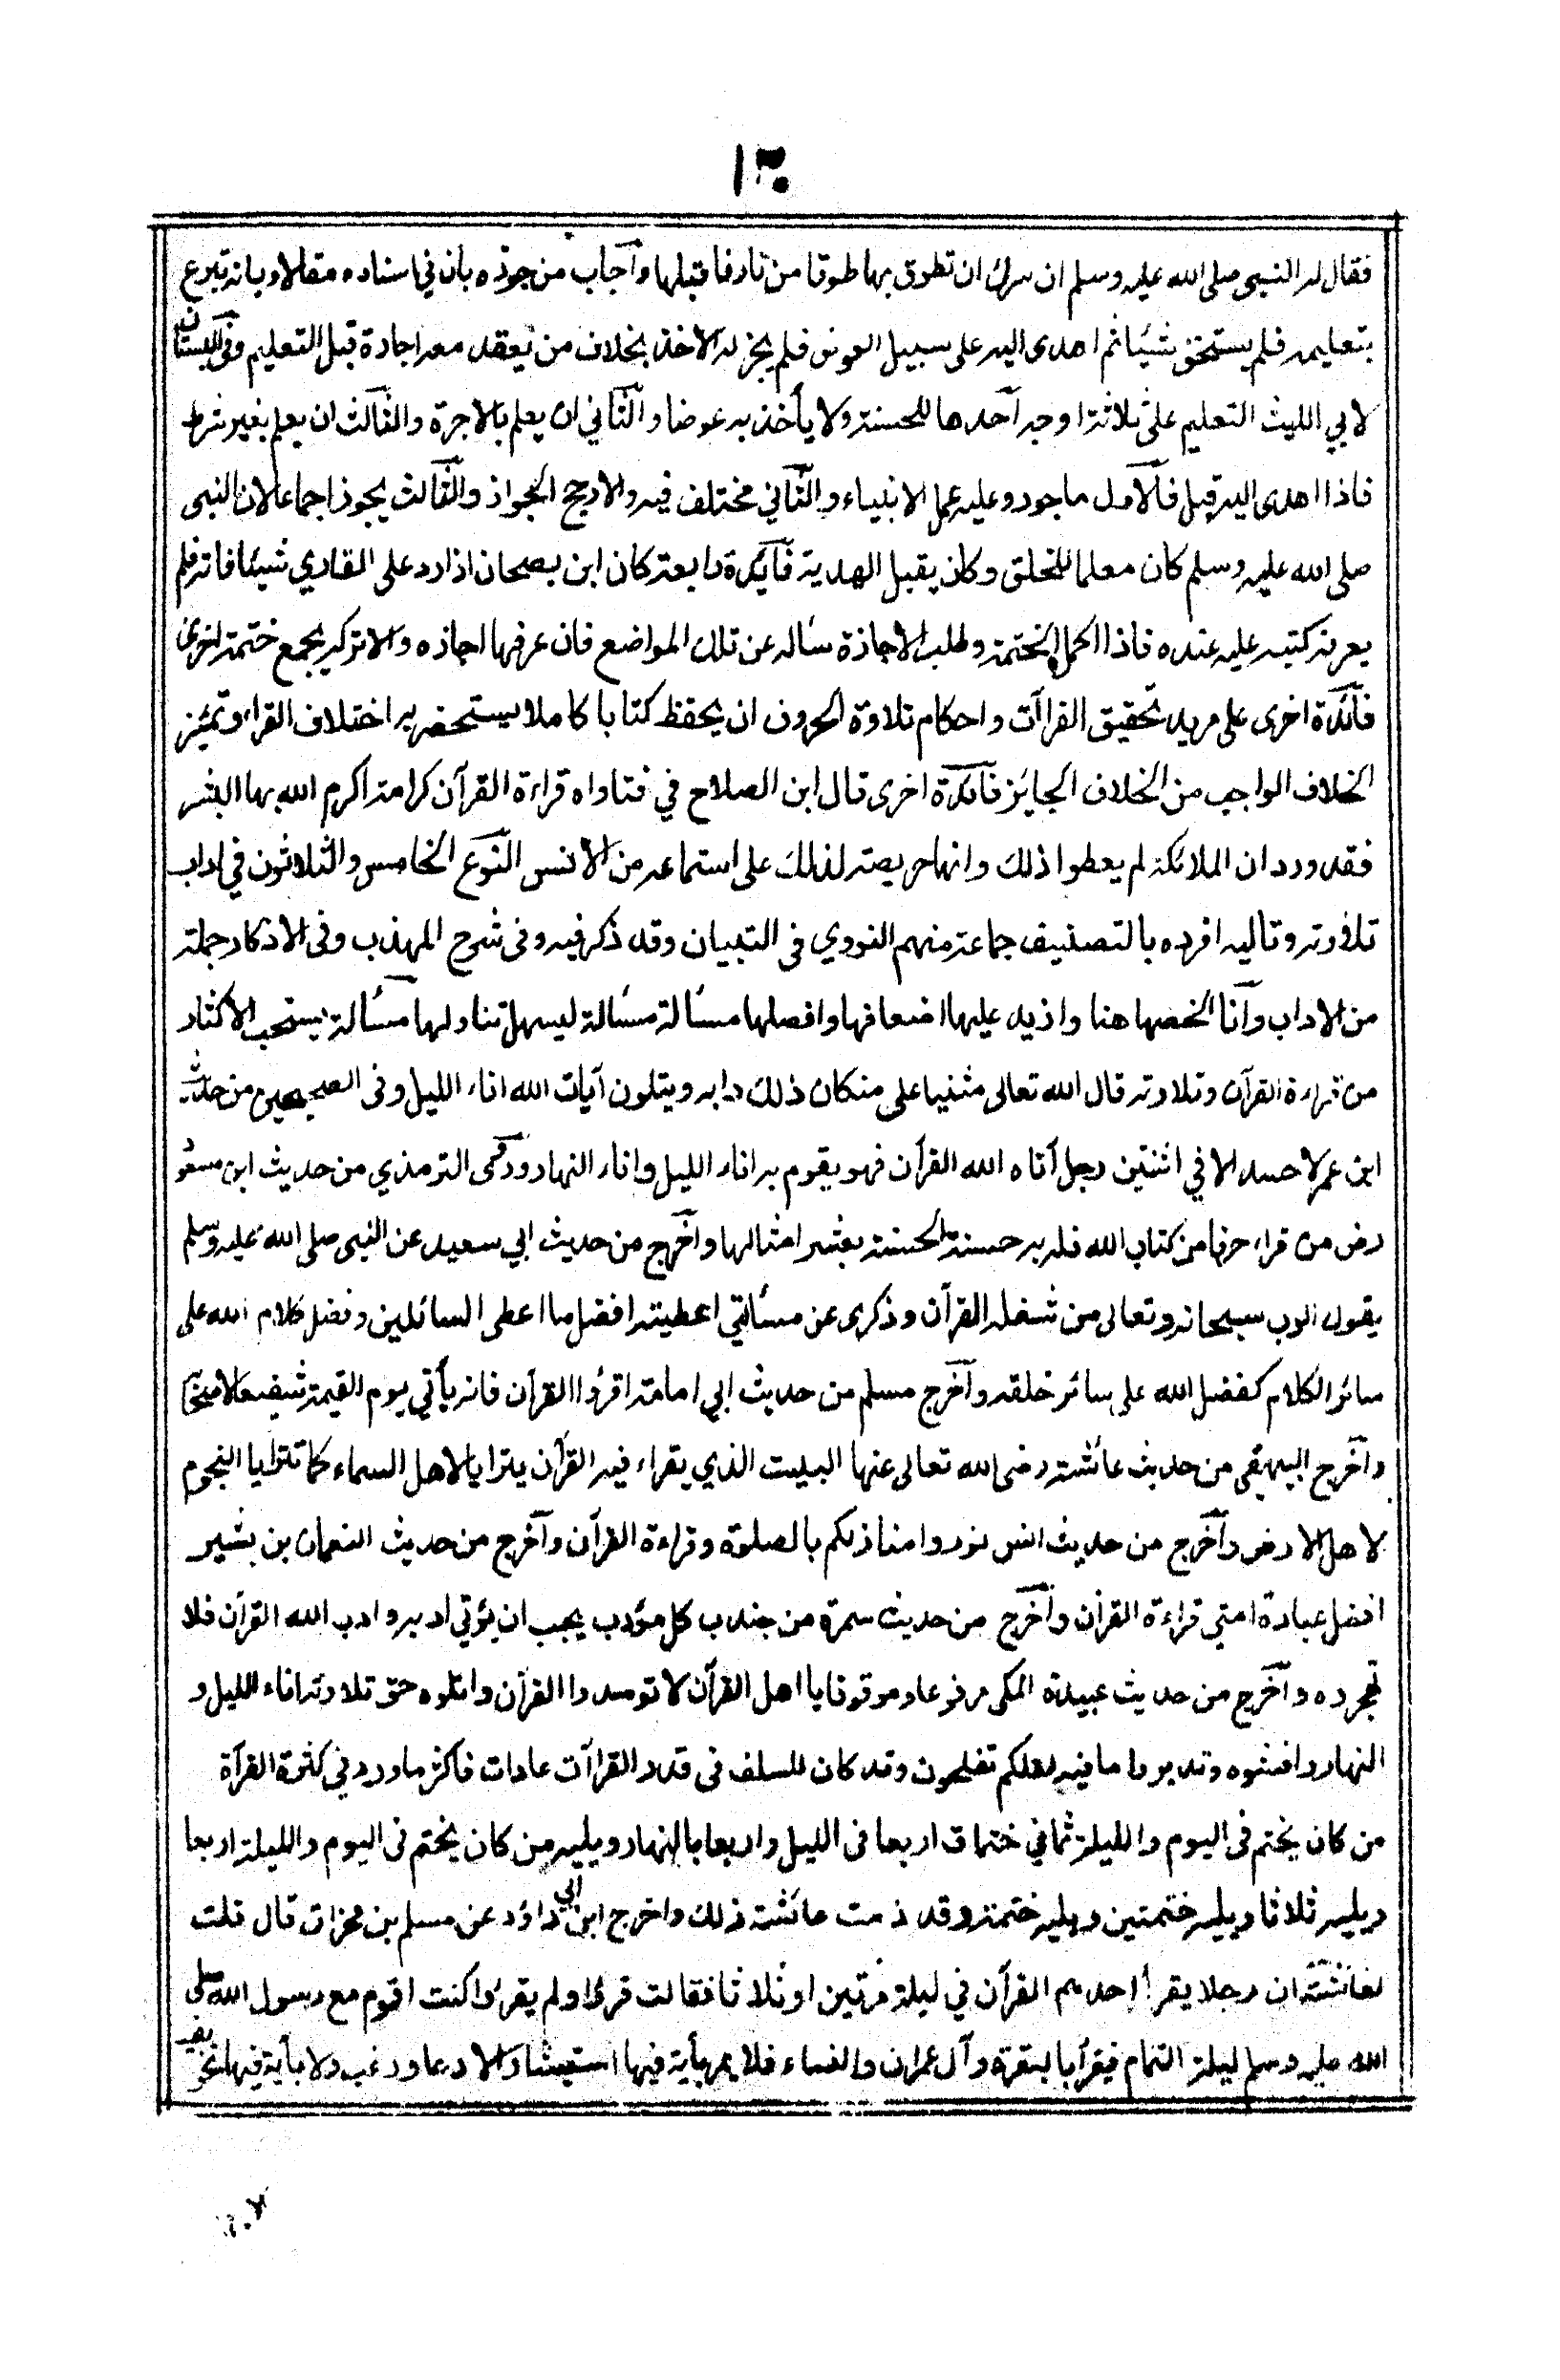 ١٣٠
فقال له النبى صلى الله عليه وسلم ان سرك ان تطوق بها طوقا من نار فاقبلها وآجاب من جوزه بان في اسناده مقالا وبانه تبرع
بتعليمه فلم يستحق شيئا ثم اهدى اليه على سبيل العوض فلم يجز له الاخذ بخلاف من يعقد معه اجارة قبل التعليم وفى البستان
لابي الليث التعليم على ثلاثة اوجه آحدها للحسنة ولا يأخذ به عوضا والثاني ان يعلم بالاجرة والثالث ان يعلم بغير شرط
فاذا اهدى اليه قبل فالآول ماجور وعليه عمل الانبياء والثاني مختلف فيه والارجح الجواز والثالث يجوز اجماعا لان النبى
صلى الله عليه وسلم كان معلما للخلق وكان يقبل الهدية فآئدة رابعة كان ابن بصحان اذا رد على القاري شيئا فاته فلم
يعرفه كتبه عليه عنده فاذا اكمل الختمة وطلب الاجازة سأله عن تلك المواضع فان عرفها اجازه والا تركه يجمع ختمة اخرى
فآئدة اخرى على مريد تحقيق القراآت واحكام تلاوة الحروف ان يحفظ كتابا كاملا يستحضر به اختلاف القراء وتمئيز
الخلاف الواجب من الخلاف الجايئز فآئدة اخرى قال ابن الصلاح في فتاواه قراءة القرآن كرامة اكرم الله بها البشر
فقد ورد ان الملائكة لم يعطوا ذلك وانها حريصة لذلك على استماعه من الانس النوع الخامس والثلاثون في اداب
تلاوته وتاليه افرده بالتصنيف جماعة منهم النووي فى التبيان وقد ذكر فيه وفى شرح المهذب وفى الاذكار جملة
من الاداب وآنا الخصها هنا وازيد عليها اضعافها وافصلها مسألة مسألة ليسهل تناولها مسألة يستحب الاكثار
من قراءة القرآن وتلاوته قال الله تعالى مثنيا على من كان ذلك دابه ويتلون آيات الله اناء الليل وفى الصحيحين من حديث
ابن عمر لا حسد الا في اثنتين رجل آتاه الله القرآن فهو يقوم به اناء الليل واناء النهار وروى الترمذي من حديث ابن مسعود
رض من قراء حرفا من كتاب الله فله به حسنة والحسنة بعشر امثالها وآخرج من حديث ابي سعيد عن النبى صلى الله عليه وسلم
يقول الرب سبحانه وتعالى من شغله القرآن وذكرى عن مسألتي اعطيته افضل ما اعطى السائلين وفضل كلام الله على
سائر الكلام كفضل الله على سائر خلقه وآخرج مسلم من حديث ابي امامة اقرؤا القرآن فانه يأتي يوم القيمة شفيعا لاصحابه
وآخرج البيهقى من حديث عائشة رضى الله تعالى عنها البيت الذي يقراء فيه القرآن يترايا لاهل السماء كما تترايا النجوم
لاهل الارض وآخرج من حديث انس نوروا منازلكم بالصلوة وقراءة القرآن وآخرج من حديث النعمان بن بشير
افضل عبادة امتي قراءة القرآن وآخرج من حديث سمرة من جندب كل مؤدب يجب ان يؤتي ادبه وادب الله القرآن فلا
تهجروه وآخرج من حديث عبيدة المكى مرفوعا وموقوفا يا اهل القرآن لا توسدوا القرآن واتلوه حق تلاوته اناء الليل و
النهار وافشوه وتدبروا ما فيه لعلكم تفلحون وقد كان للسلف فى قدر القراآت عادات فاكثر ما ورد في كثرة القرآة
من كان يختم فى اليوم والليلة ثماني ختمات اربعا فى الليل واربعا بالنهار ويليه من كان يختم فى اليوم والليلة اربعا
ويليه ثلاثا ويليه ختمتين ويليه ختمة وقد ذمت عائشة ذلك واخرج ابن ابي داؤد عن مسلم بن مخراق قال قلت
لعائشة ان رجلا يقرأ احدهم القرآن في ليلة مرتين او ثلاثا فقالت قرؤا ولم يقرؤا كنت اقوم مع رسول الله صلى
الله عليه وسلم ليلة التمام فيقرأ بالبقرة وآل عمران والنساء فلا يمر بأية فيها استبشار الا دعا ورغب ولا بأية فيها تخويف